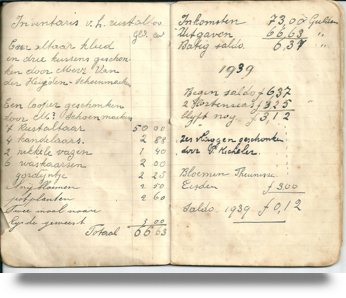 Inventaris v. h. rustaltaar
Gld. Cent
Een altaar kleed
en drie kussens geschon-
ken door Mevr. Van
der Heyden-Schoenmackers
Een Looper geschonken
door Mej. Schoenmackers
1 Rustaltaar 50 00
4 kandelaars. 2 88
2 enkele vazen 1 40
2 waskaarsen 2 00
gordijntje 2 25
Bloemen 2 50
potplanten 2 60
Twee maal naar
Eysde geweest 3 00
Totaal 66 63
Inkomsten 73,00 Gulden
Uitgaven 66,63 "
Batig saldo. 6,37 "
1939
Begin saldo f 6,37
2 Hortensias f 3,25
Blyft nog. f 3,12
zes vlaggen geschonken
door
Bloemen Theunissen
Eisden f 3,00
Saldo 1939 f 0,12